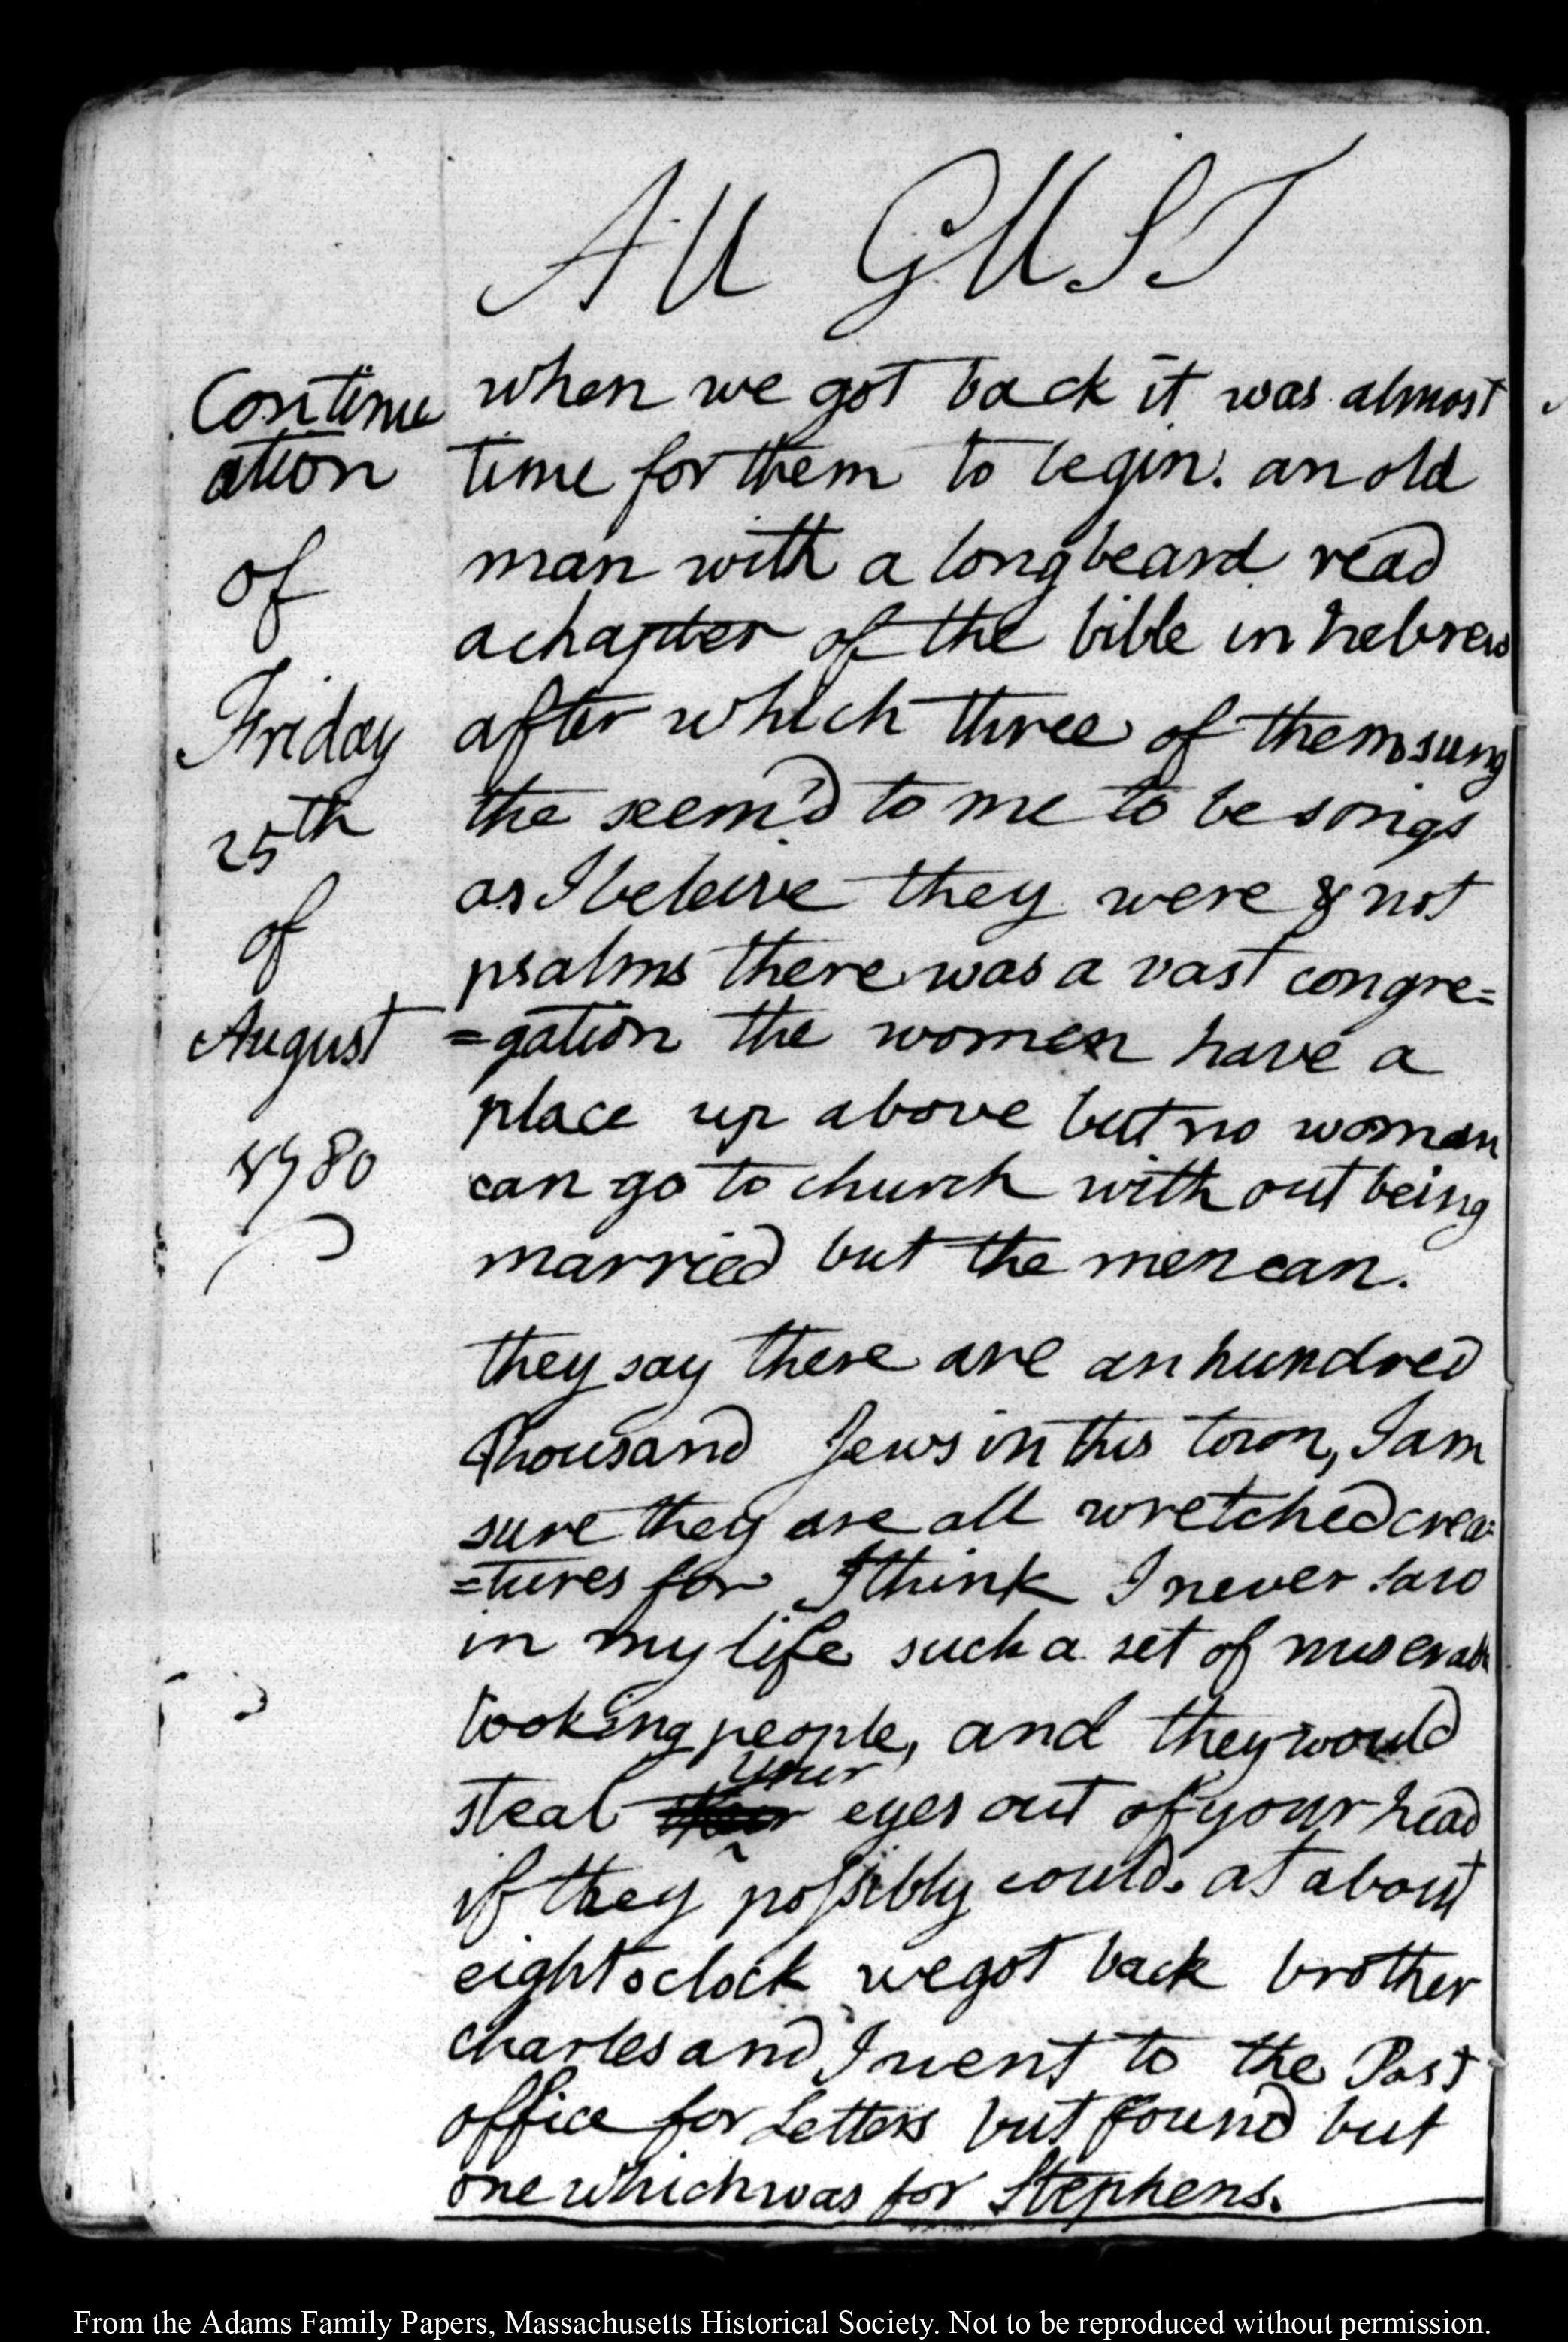 AUGUST
Continu
ation
of
Friday
25th
of
August
1780
when we got back it was almost
time for them to begin. an old
man with a long beard read
a chapter of the bible in hebrew
after which three of them sung
the seem'd to me to be songs
as I beleive they were & not
psalms there was a vast congre=
=gation the women have a
place up above but no woman
can go to church with out being
married but the men can.
they say there are an hundred
Thousand Jews in this town, I am
sure they are all wretched crea=
=tures for I think I never saw
in my life such a set of miserable
looking people, and they would
your
steal eyes out of your head
if they possibly could. at about
eight oclock we got back brother
charles and I went to the Post
office for Letters but found but
one which was for Stephens.
From the Adams Family Papers, Massachusetts Historical Society. Not to be reproduced without permission.